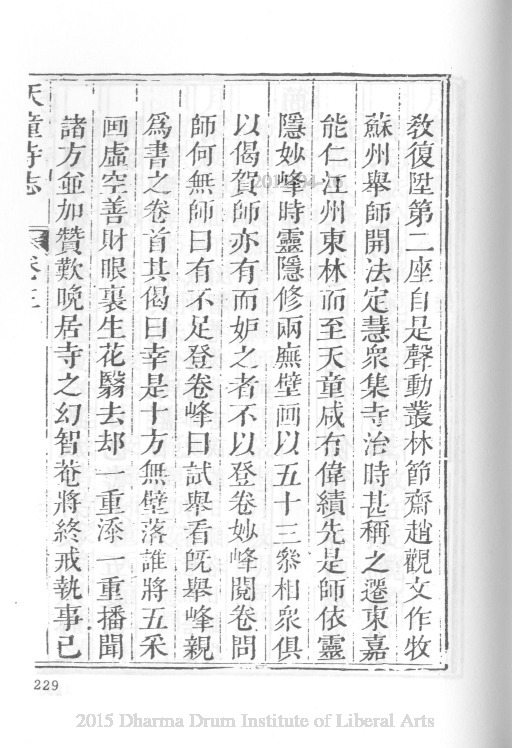 敎復陞第二座自是聲動叢林節齋趙觀文作牧
蘇州舉師開法定慧衆集寺治時甚稱之遷東嘉
能仁江州東林而至天童咸有偉績先是師依靈
隱妙峰時靈隱修兩廡壁画以五十三叅相衆俱
以偈賀師亦有而妒之者不以登卷妙峰閱卷問
師何無師曰有不足登卷峰曰試舉看旣舉峰親
爲書之卷首其偈曰幸是十方無壁落誰將五采
画虛空善財眼裏生花翳去却一重添一重播聞
諸方並加贊歎晚居寺之幻智菴將終戒執事已
天童寺志 卷三
229
2015 Dharma Drum Institute of Liberal Arts